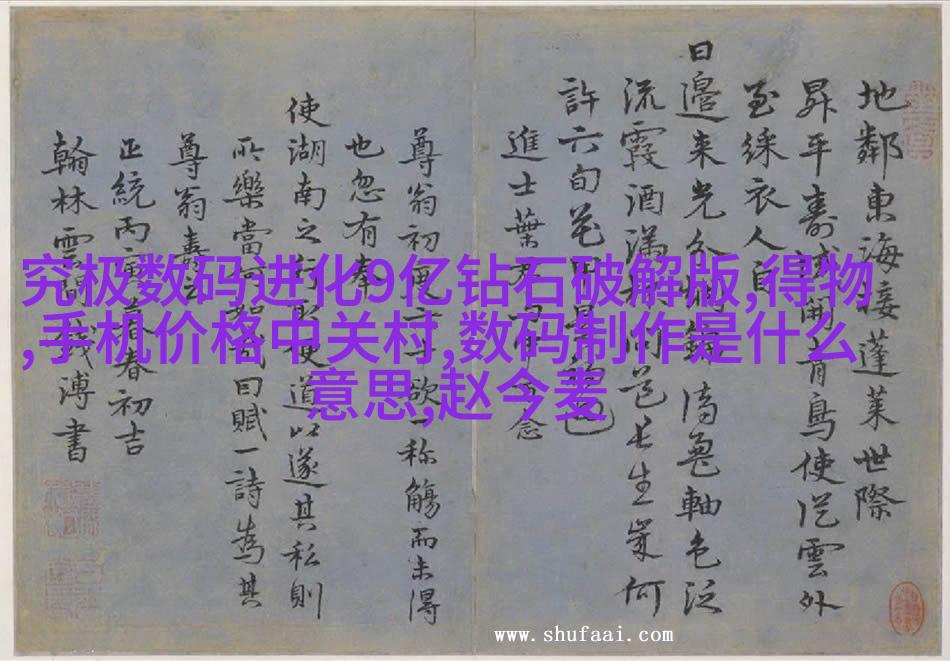 地鄰東海接蓬萊世際
昇平壽域開有鳥使從雲外
至綵衣人自
日邊來光分龜軸色泛
流霞酒滿長生策何
許六旬花甲是
進士葉君念
尊翁初度欲一称觴而未得
也忽有奉
使湖南之行取便道以遂其私則
所樂當何如因賦一詩為其
尊翁壽云
正統丙寅春初吉
翰林雲間錢溥書
究极数码进化9亿钻石破解版,得物
,手机价格中关村,数码制作是什么
意思,赵今麦
www.shufaai.com